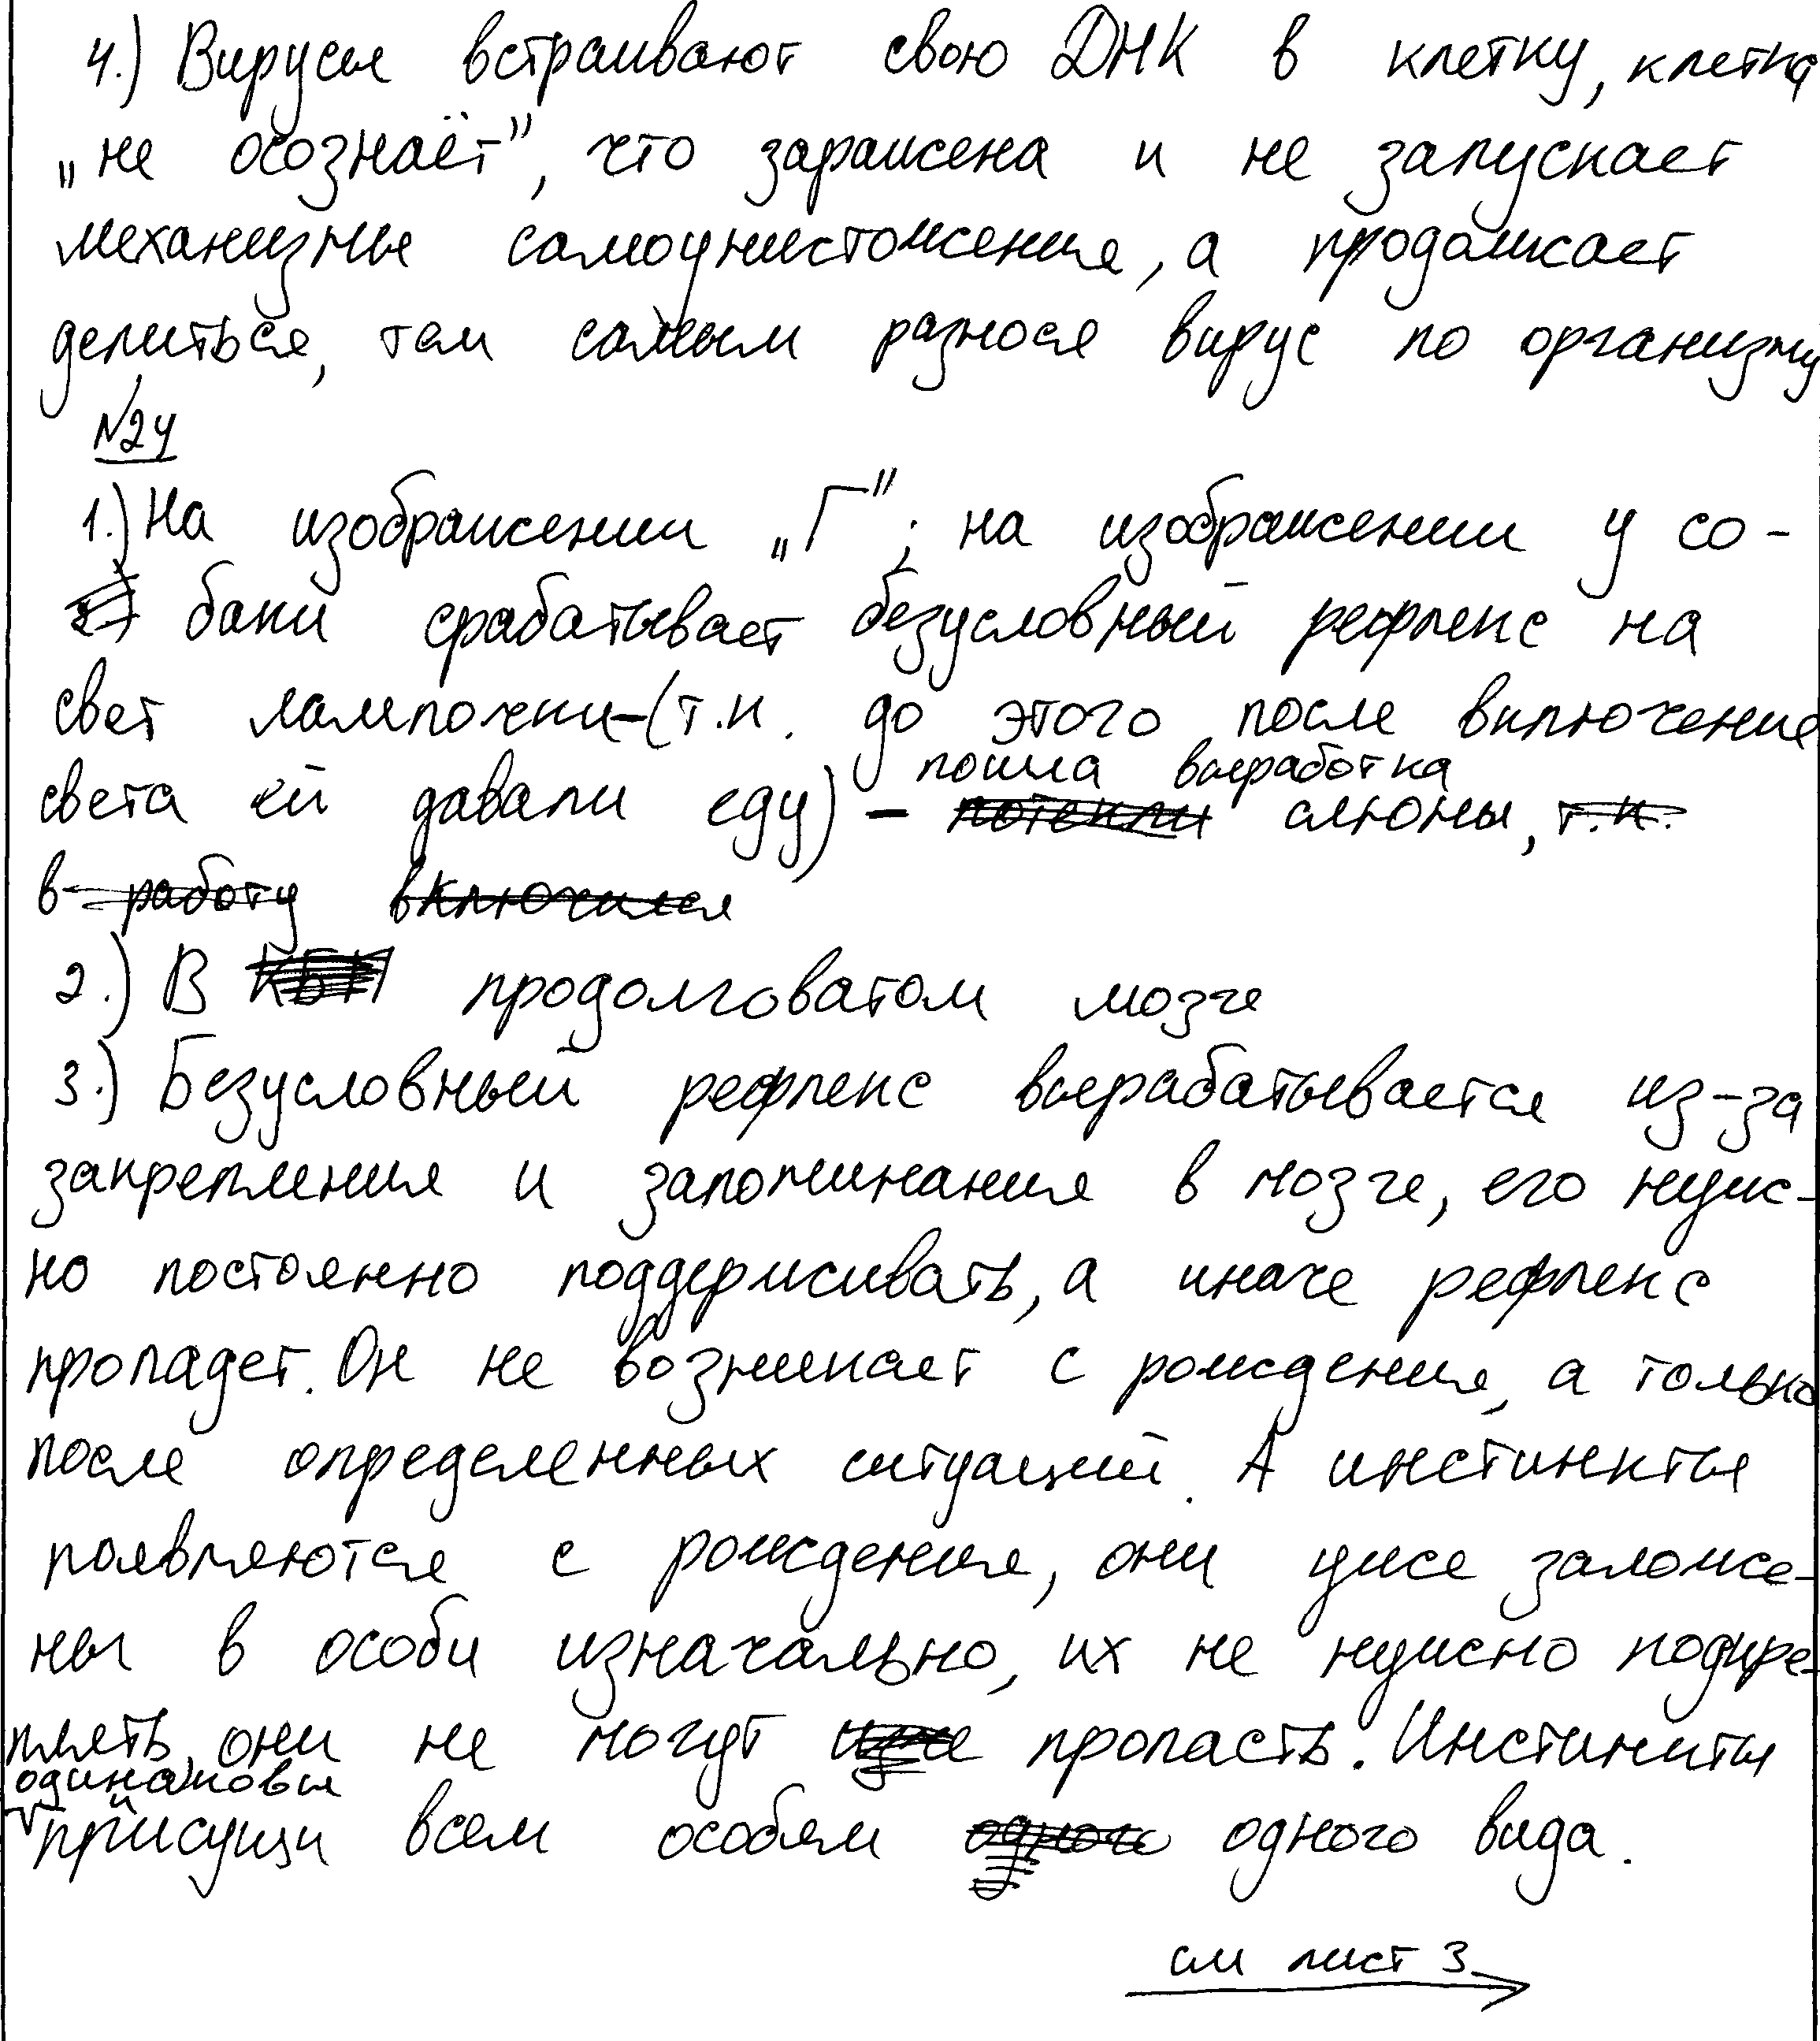 4.) Вирусы встраивают свою ДНК в клетку, клетка
„не осознаёт”, что заражена и не запускает
механизмы самоуничтожения, а продолжает
делиться, тем самым разнося вирус по организму
№24
1.) На изображении „Г”; на изображении у со-
баки срабатывает безусловный рефлекс на
свет лампочки–(т.к. до этого после включения
света ей давали еду) – пошла выработка слюны, т.к.
в работу включился
2.) В продолговатом мозге
3.) Безусловный рефлекс вырабатывается из-за
закрепления и запоминания в мозге, его нуж-
но постоянно поддерживать, а иначе рефлекс
пропадет. Он не возникает с рождения, а только
после определенных ситуаций. А инстинкты
появляются с рождения, они уже заложе-
ны в особи изначально, их не нужно подкре-
плять, они не могут пропасть. Инстинкты
одинаковы
присущи всем особям одного вида.
см лист 3